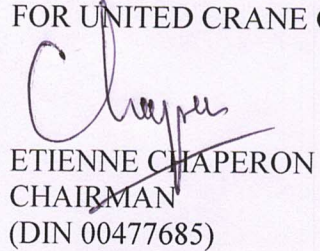 FOR UNITED CRANE
ETIENNE CHAPERON
CHAIRMAN
(DIN 00477685)